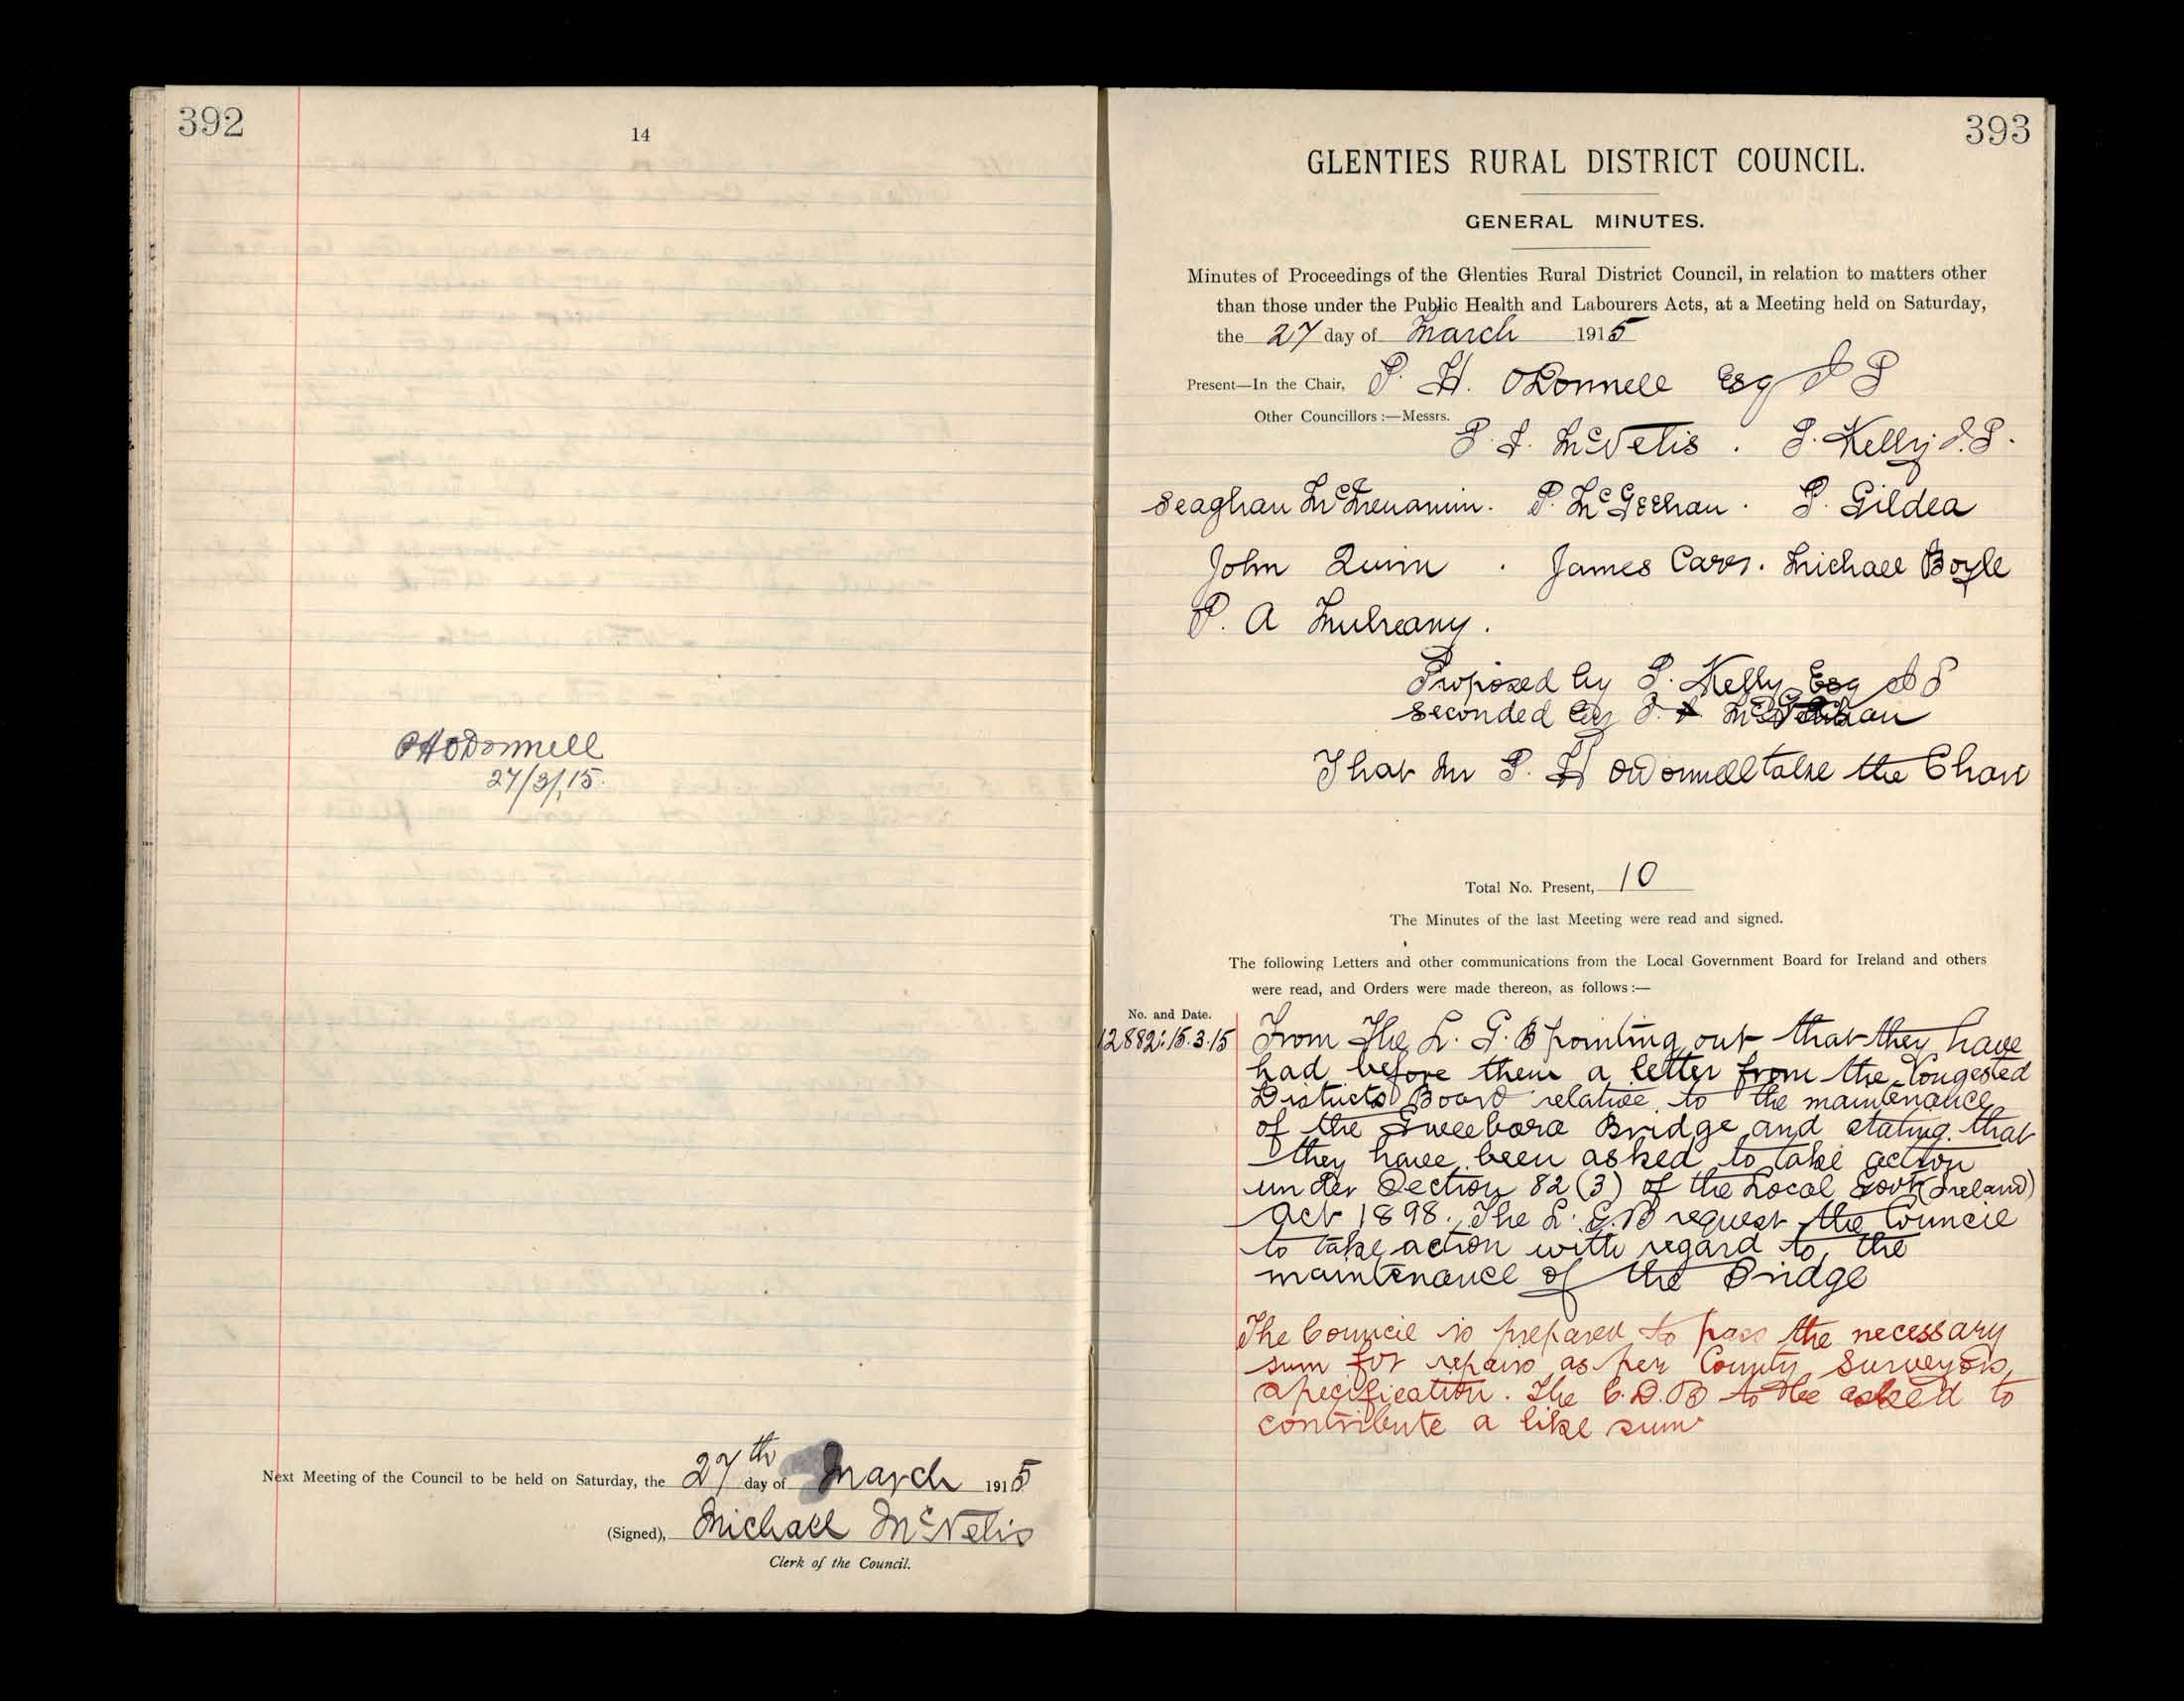 392
14
PHODonnell
27/3/15.
Next Meeting of the Council to be held on Saturday, the 27th day of March 1915
(Signed), Michael McNelis
Clerk of the Council.
393
GLENTIES RURAL DISTRICT COUNCIL.
GENERAL MINUTES.
Minutes of Proceedings of the Glenties Rural District Council, in relation to matters other
than those under the Public Health and Labourers Acts, at a Meeting held on Saturday,
the 27 day of March 1915
Present—In the Chair, P. H. ODonnell Esq J P
Other Councillors :—Messrs.
P. J. McNelis . P. Kelly J.P.
Seaghan McMenamin. P. McGeehan . P. Gildea
John Quinn . James Carr. Michael Boyle
P. A Mulreany.
Proposed by P. Kelly Esq J P
Seconded by P. McGeehan
That Mr P. H ODonnell take the Chair
Total No. Present, 10
The Minutes of the last Meeting were read and signed.
The following Letters and other communications from the Local Government Board for Ireland and others
were read, and Orders were made thereon, as follows :—
No. and Date.
12882: 15.3.15 From The L. G. B pointing out that they have
had before them a letter from the Congested
Districts Board relative to the maintenance
of the Gweebara Bridge and stating that
they have been asked to take action
under Section 82 (3) of the Local Govt (Ireland)
Act 1898. The L. G. B request the Council
to take action with regard to the
maintenance of the Bridge
The Council is prepared to pass the necessary
sum for repairs as per County Surveyors
specification. The C.D.B to be asked to
contribute a like sum